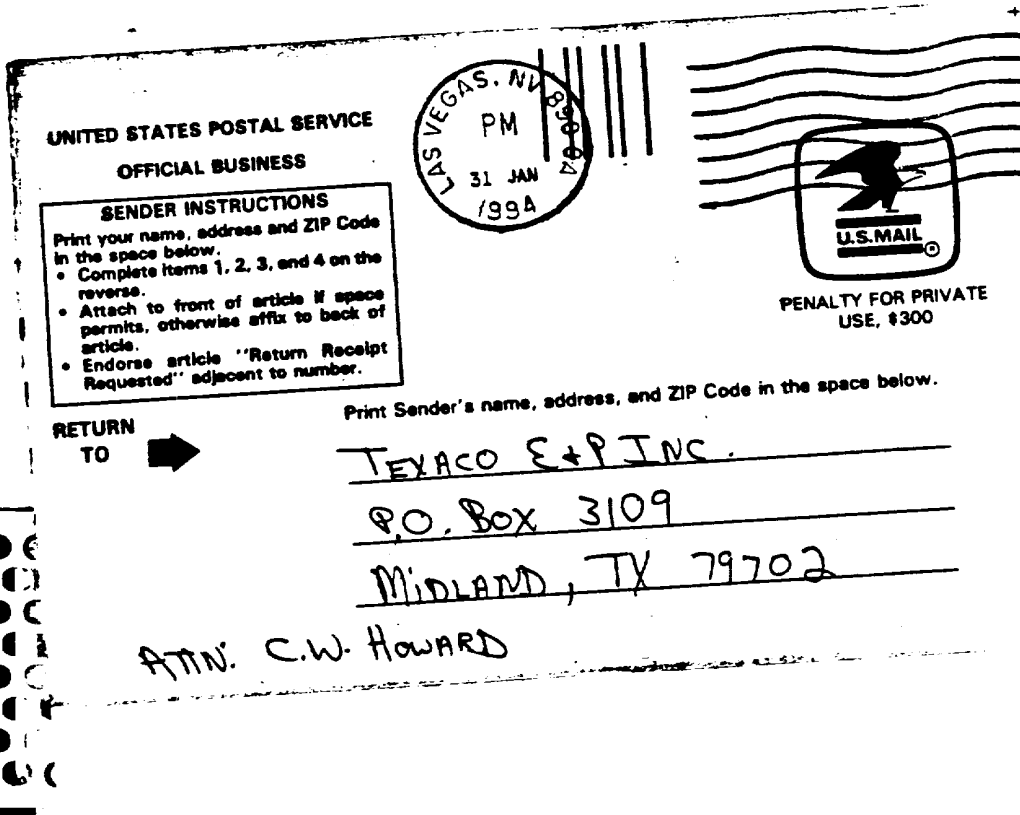 UNITED STATES POSTAL SERVICE
OFFICIAL BUSINESS
SENDER INSTRUCTIONS
Print your name, address and ZIP Code
in the space below.
• Complete items 1, 2, 3, and 4 on the
reverse.
• Attach to front of article if space
permits, otherwise affix to back of
article.
• Endorse article "Return Receipt
Requested" adjacent to number.
LAS VEGAS, NV
PM
31 JAN
1994
U.S.MAIL
PENALTY FOR PRIVATE
USE, $300
RETURN
TO
Print Sender's name, address, and ZIP Code in the space below.
TEXACO E+P INC.
P.O. BOX 3109
MIDLAND, TX 79702
ATTN: C.W. HOWARD